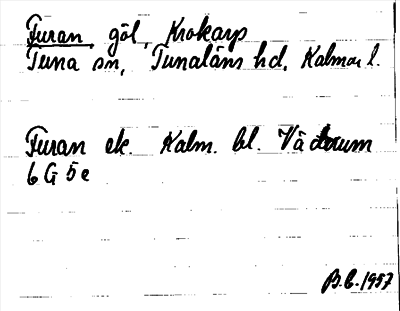 Furan, göl, Krokarp
Tuna sn, Tunaläns hd, Kalmar l.
Furan ek. Kalm. bl. Väderum
6 G 5 e
B.E. 1957